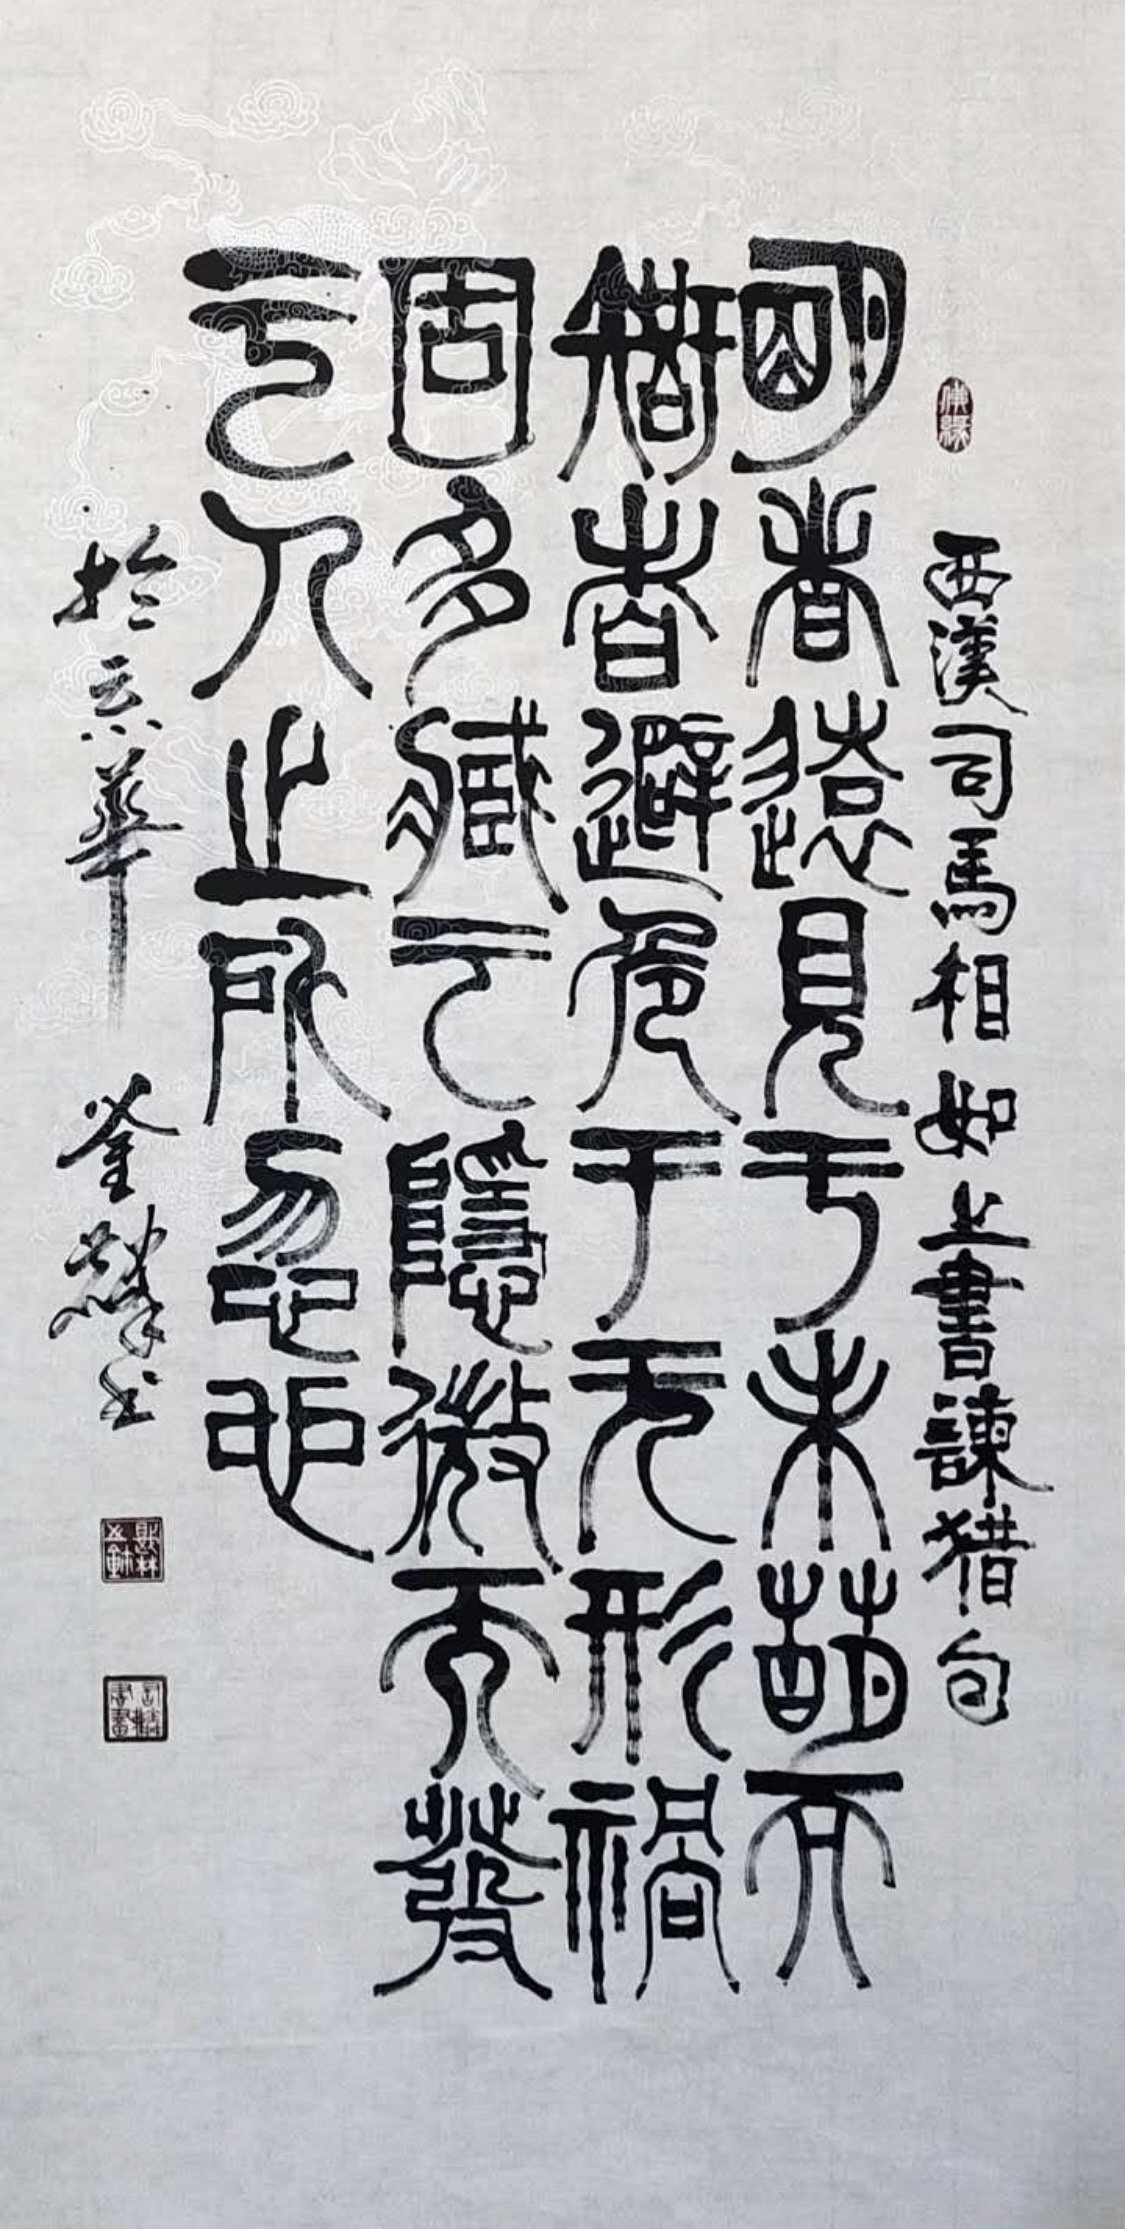 西漢司馬相如上書諫猎句
明者遠見于未萌而
智者避危于无形禍
固多藏于隱微而發
于人之所忽也
於京華